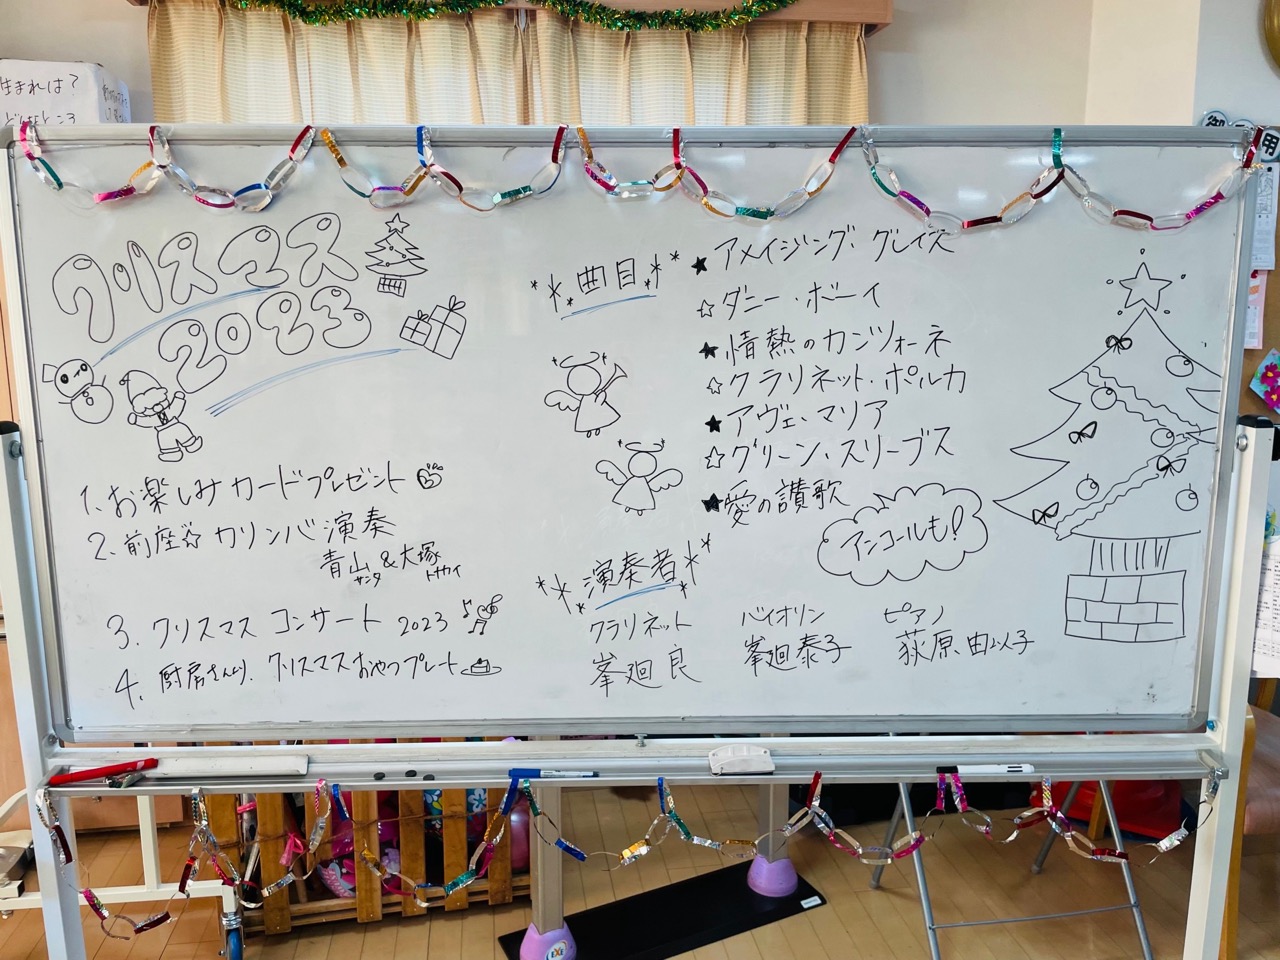 クリスマス
2023
1. お楽しみカードプレゼント
2. 前座☆カリンバ演奏
青山&大塚
サンタ トナカイ
3. クリスマス コンサート 2023
4. 厨房さんより、クリスマスおやつプレート
曲目
★アメイジング・グレイス
☆ダニー・ボーイ
★情熱のカンツォーネ
☆クラリネット・ポルカ
★アヴェ・マリア
☆グリーン・スリーブス
★愛の讃歌
アンコールも!
演奏者
クラリネット バイオリン ピアノ
峯廻 良 峯廻泰子 荻原由以子
生まれは?
用